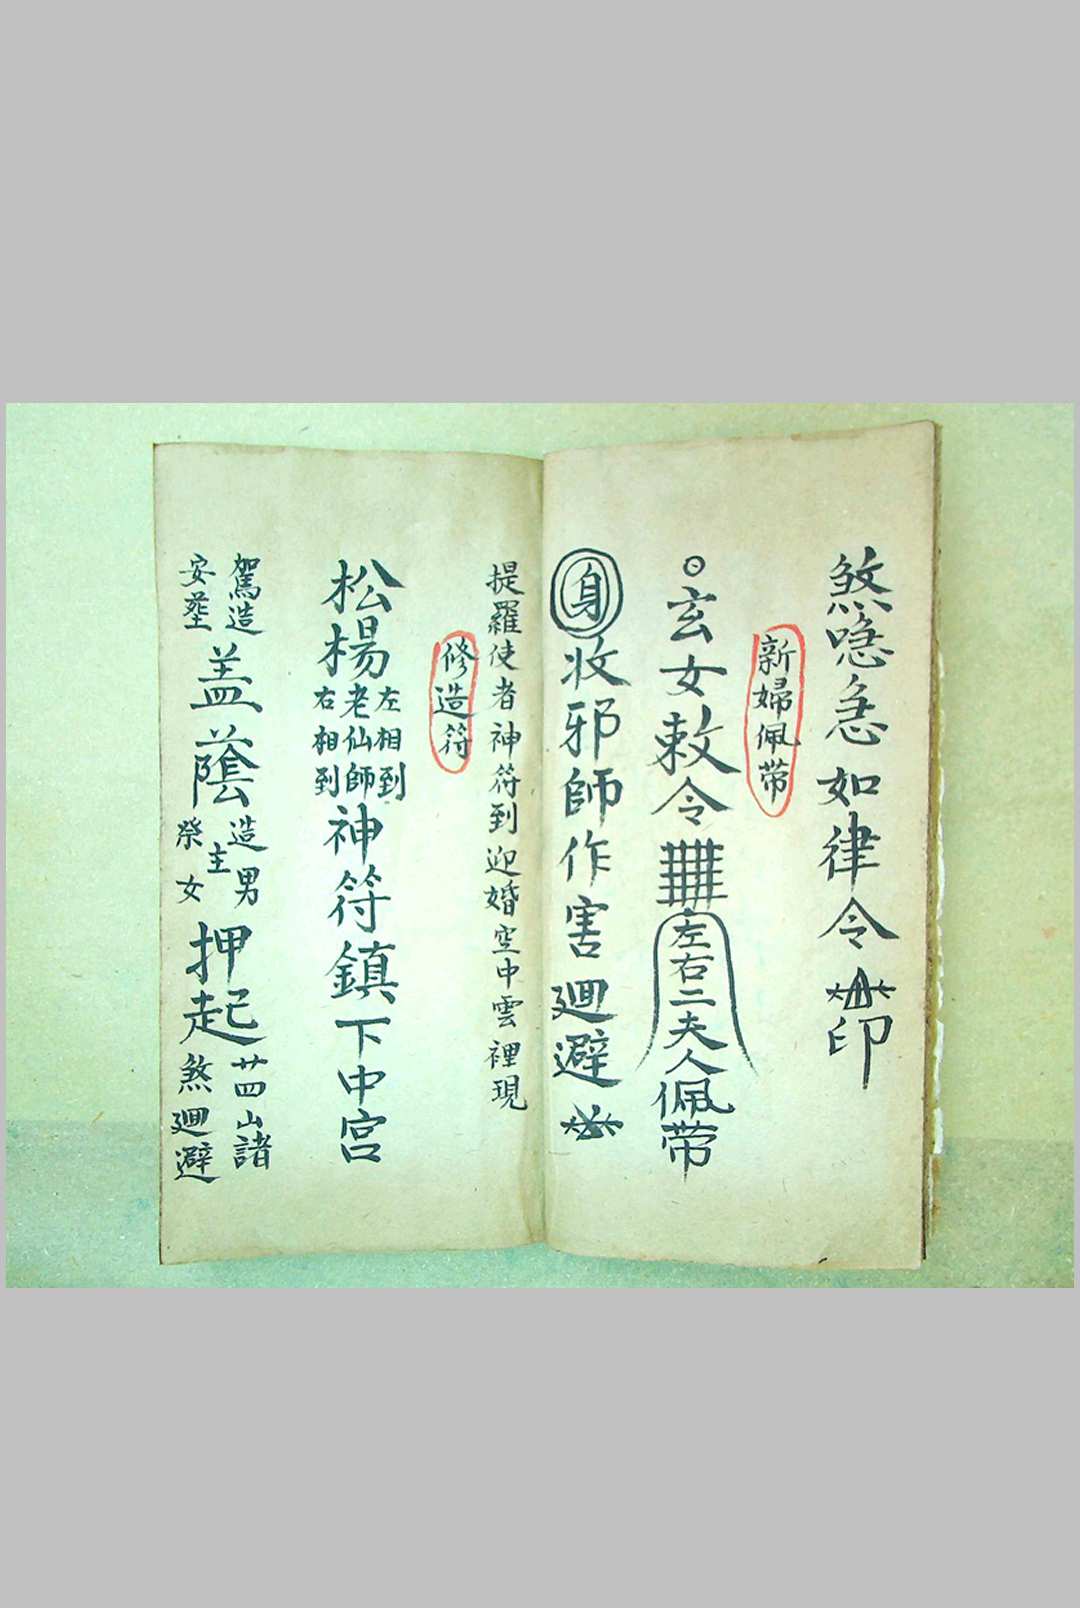 煞唸急如律令 印
新婦佩带
玄女敕令 左右二夫人佩带
身 收邪師作害廻避
提羅使者神符到迎婚空中雲裡現
修造符
松楊 左相到 老仙師 右相到 神符鎮下中宫
駕造 安 蓋蔭 造男 主 榮女 押起 廿四山諸 煞廻避